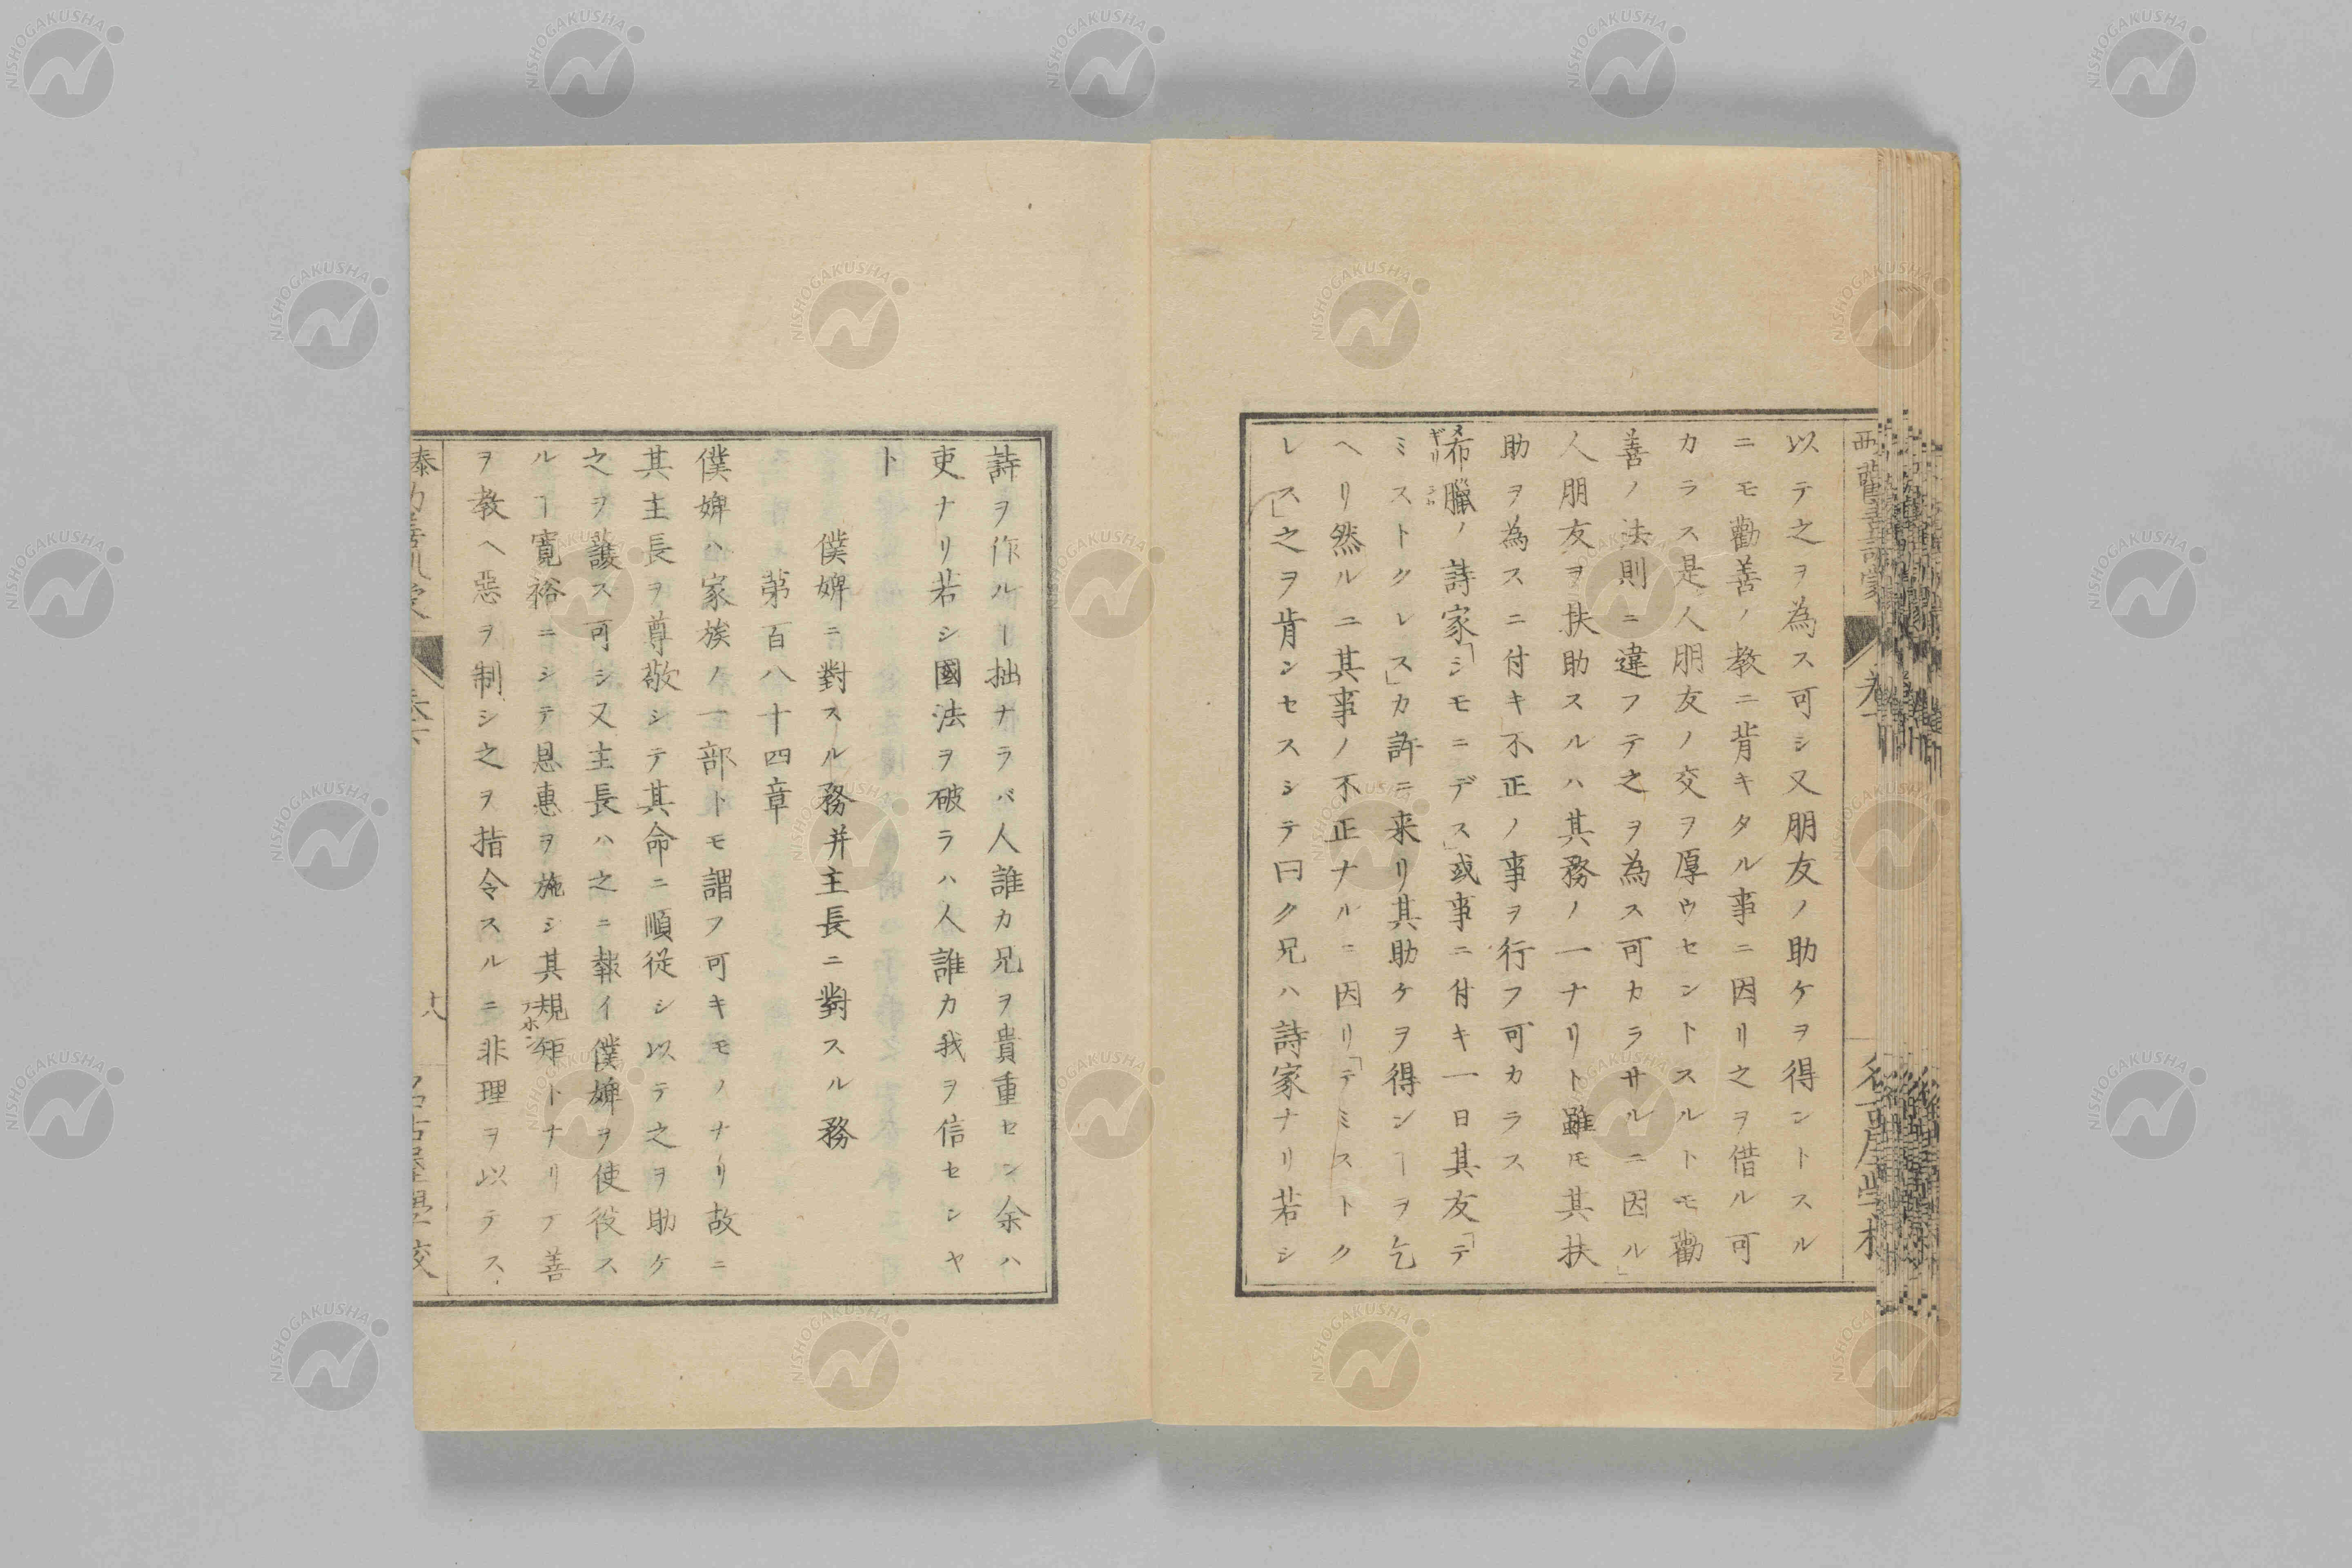 以テ之ヲ為ス可シ又朋友ノ助ケヲ得ントスル
ニモ勸善ノ教ニ背キタル事ニ因リ之ヲ借ル可
カラス是人朋友ノ交ヲ厚ウセントスルトモ勸
善ノ法則ニ違フテ之ヲ為ス可カラサルニ因ル」
人朋友ヲ扶助スルハ其務ノ一ナリト雖モ其扶
助ヲ為スニ付キ不正ノ事ヲ行フ可カラス
希臘ノ詩家「シモニデス」或事ニ付キ一日其友「テ
ミストクレス」カ許ニ来リ其助ケヲ得ンヿヲ乞
ヘリ然ルニ其事ノ不正ナルニ因リ「テミストク
レス」之ヲ肯ンセスシテ曰ク兄ハ詩家ナリ若シ
詩ヲ作ルヿ拙ナラバ人誰カ兄ヲ貴重セン余ハ
吏ナリ若シ國法ヲ破ラハ人誰カ我ヲ信センヤ
ト
僕婢ニ對スル務并主長ニ對スル務
第百八十四章
僕婢ハ家族ノ一部トモ謂フ可キモノナリ故ニ
其主長ヲ尊敬シテ其命ニ順従シ以テ之ヲ助ケ
之ヲ護ス可シ又主長ハ之ニ報イ僕婢ヲ使役ス
ルヿ寛裕ニシテ恩惠ヲ施シ其規矩トナリテ善
ヲ教ヘ惡ヲ制シ之ヲ指令スルニ非理ヲ以テス
NISHOGAKUSHA